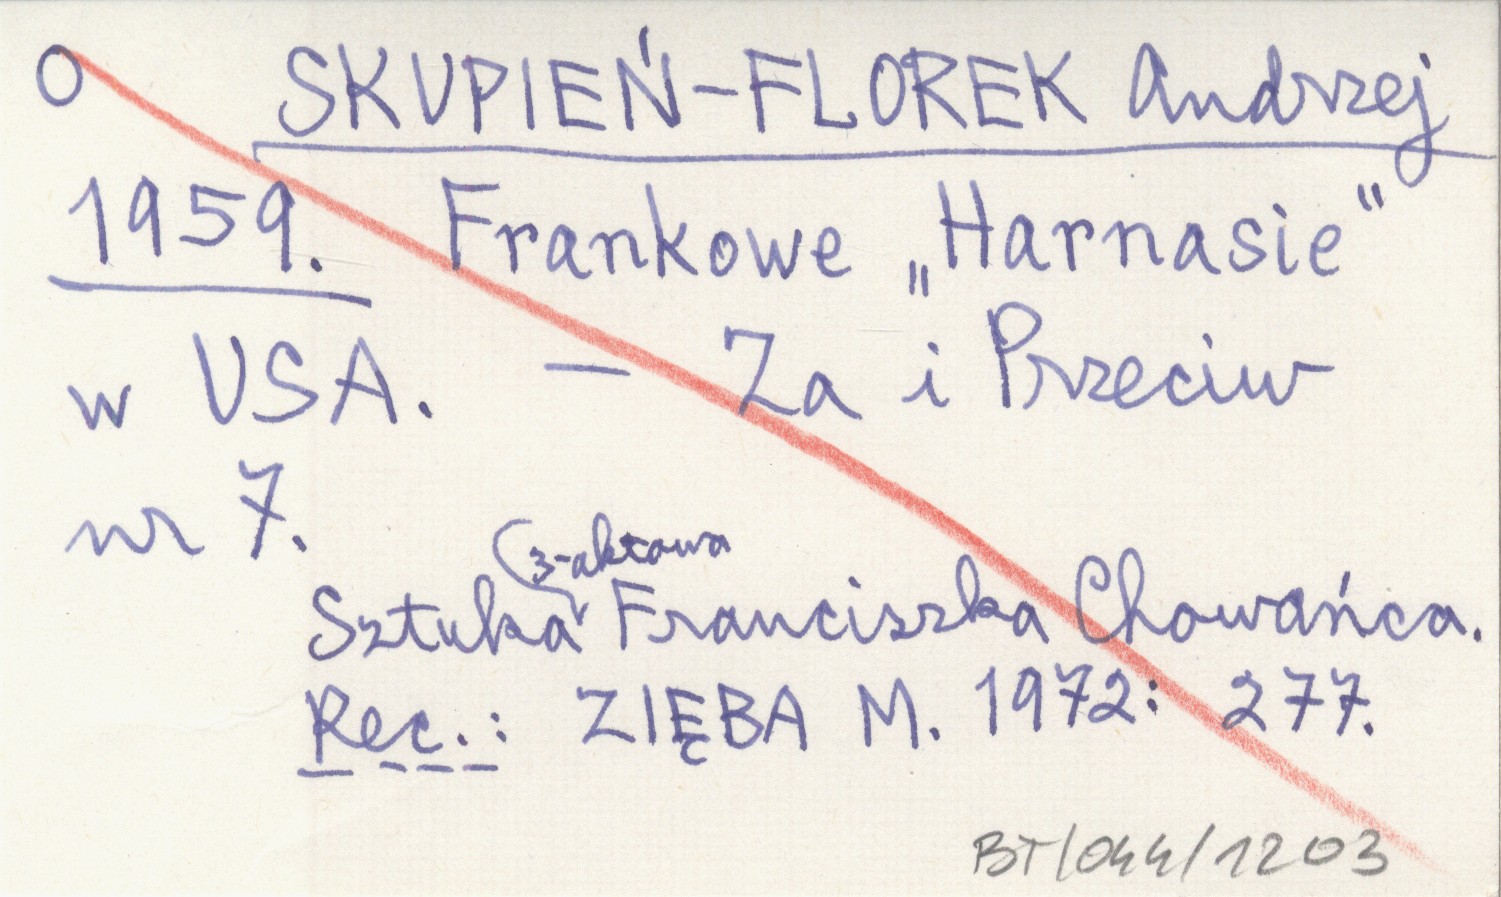 O SKUPIEŃ-FLOREK Andrzej
1959. Frankowe „Harnasie”
w USA. — Za i Przeciw
nr 7.
3-aktowa
Sztuka Franciszka Chowańca.
Rec.: ZIĘBA M. 1972: 277.
BT/044/1203